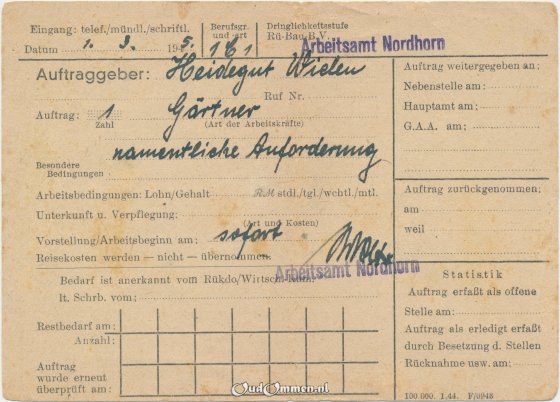 Eingang: telef./mündl./schriftl.
Datum 1. 3. 1945.
Berufsgr. und art 1 6 1
Dringlichkeitsstufe
Rü-Bau-B.V.
Arbeitsamt Nordhorn
Auftraggeber: Heidegut Wielen
Ruf Nr.
Auftrag: 1 Gärtner
Zahl (Art der Arbeitskräfte)
namentliche Anforderung
Besondere
Bedingungen
Arbeitsbedingungen: Lohn/Gehalt RM stdl./tgl./wchtl./mtl.
Unterkunft u. Verpflegung:
(Art und Kosten)
Vorstellung/Arbeitsbeginn am: sofort
Reisekosten werden — nicht — übernommen.
Arbeitsamt Nordhorn
Bedarf ist anerkannt vom Rükdo/Wirtsch.
lt. Schrb. vom:
Restbedarf am:
Anzahl:
Auftrag
wurde erneut
überprüft am:
Auftrag weitergegeben an:
Nebenstelle am:
Hauptamt am:
G.A.A. am:
Auftrag zurückgenommen:
am
weil
Statistik
Auftrag erfaßt als offene
Stelle am:
Auftrag als erledigt erfaßt
durch Besetzung d. Stellen
Rücknahme usw. am:
100 000. 1.44. F/0945
OudOmmen.nl